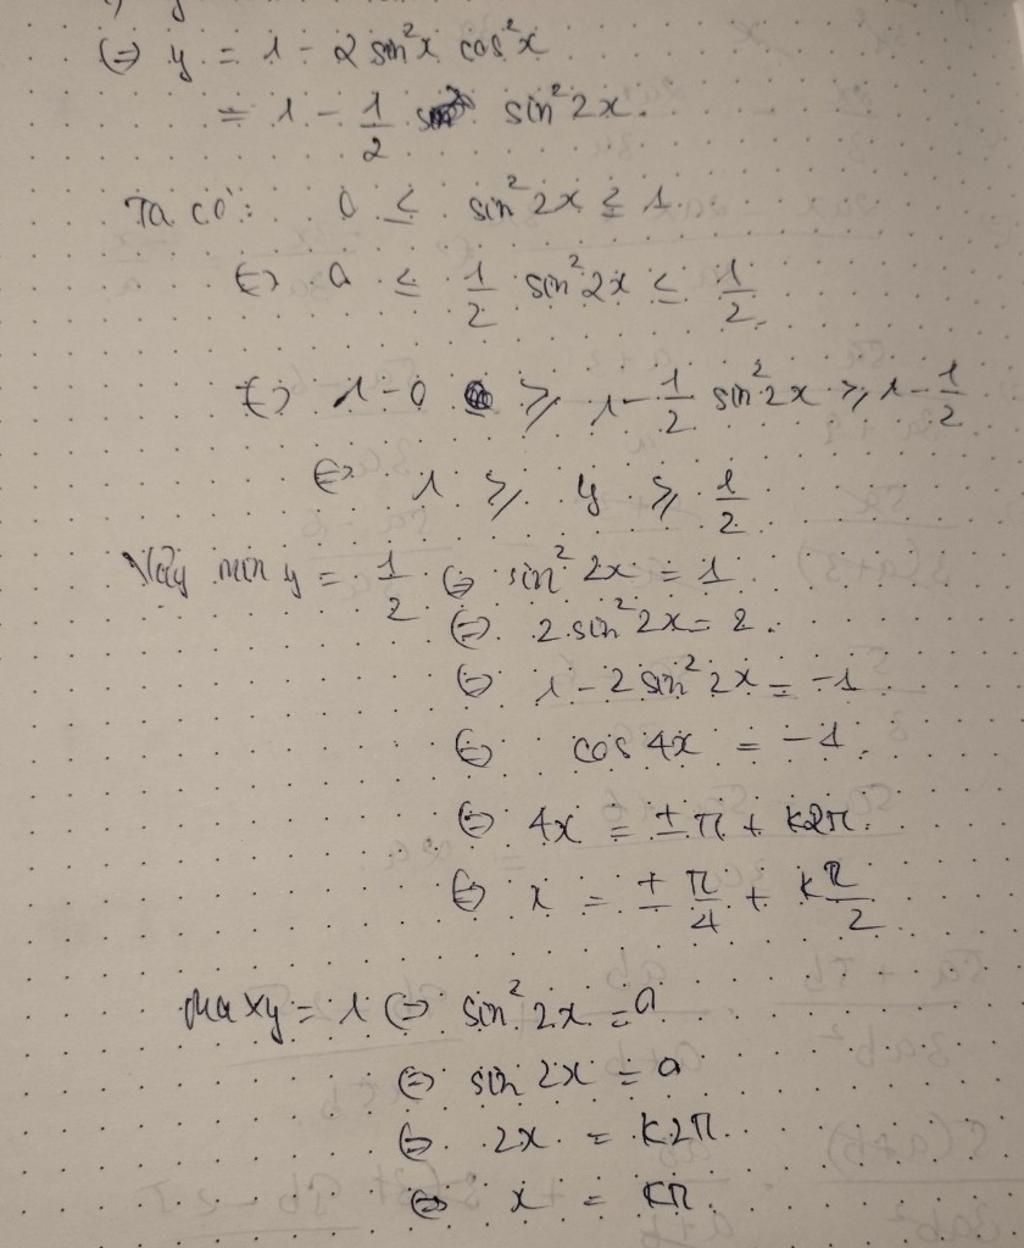 ⇔ y = 1 - 2 sin²x cos²x
= 1 - 1/2 sin²2x.
Ta có: 0 ≤ sin²2x ≤ 1.
⇔ 0 ≤ 1/2 sin²2x ≤ 1/2.
⇔ 1-0 ≥ 1 - 1/2 sin²2x ≥ 1 - 1/2.
⇔ 1 ≥ y ≥ 1/2
Vậy min y = 1/2 ⇔ sin²2x = 1
⇔ 2 sin²2x = 2.
⇔ 1 - 2 sin²2x = -1
⇔ cos 4x = -1.
⇔ 4x = ±π + k2π.
⇔ x = ± π/4 + k π/2
Max y = 1 ⇔ sin²2x = 0
⇔ sin 2x = 0
⇔ 2x = k2π.
⇔ x = kπ.